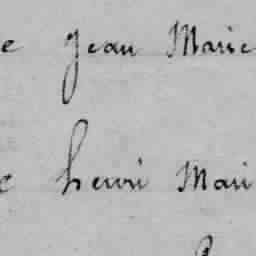 e Jean Marie
e henri Mari